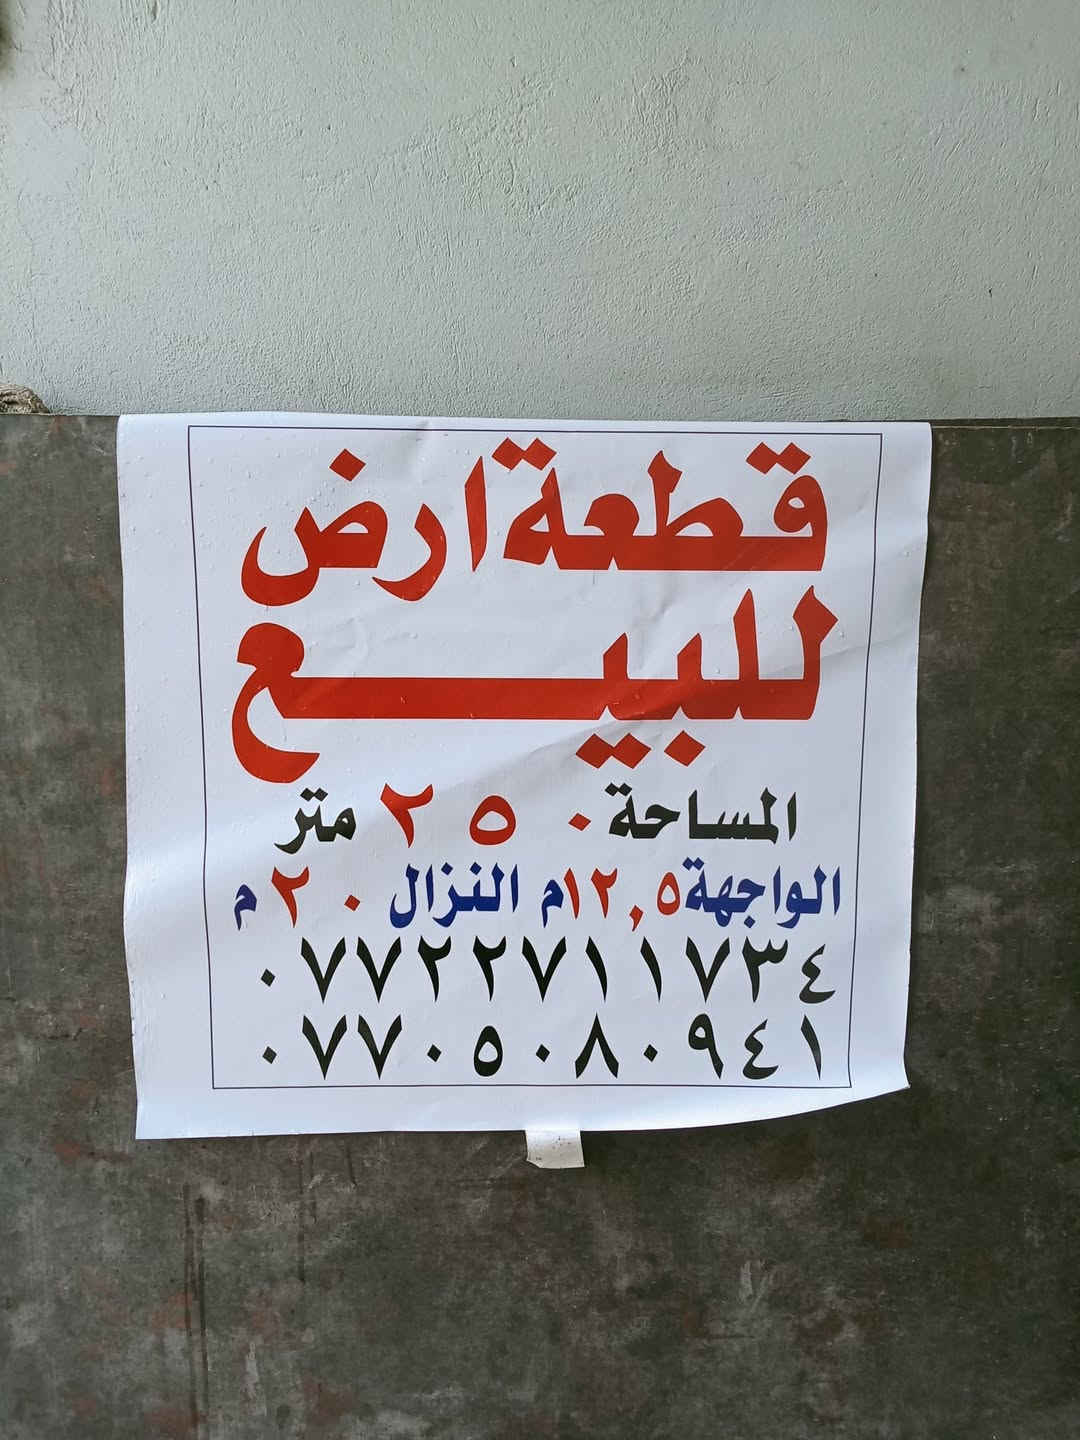 قطعة ارض
للبيـــع
المساحة ٢٥٠ متر
الواجهة ١٢,٥م النزال ٢٠ م
٠٧٧٢٢٧١١٧٣٤
٠٧٧٠٥٠٨٠٩٤١